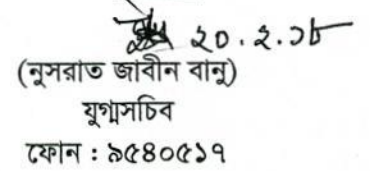 ২০.২.১৮
(নুসরাত জাবীন বানু)
যুগ্মসচিব
ফোন : ৯৫৪০৫১৭